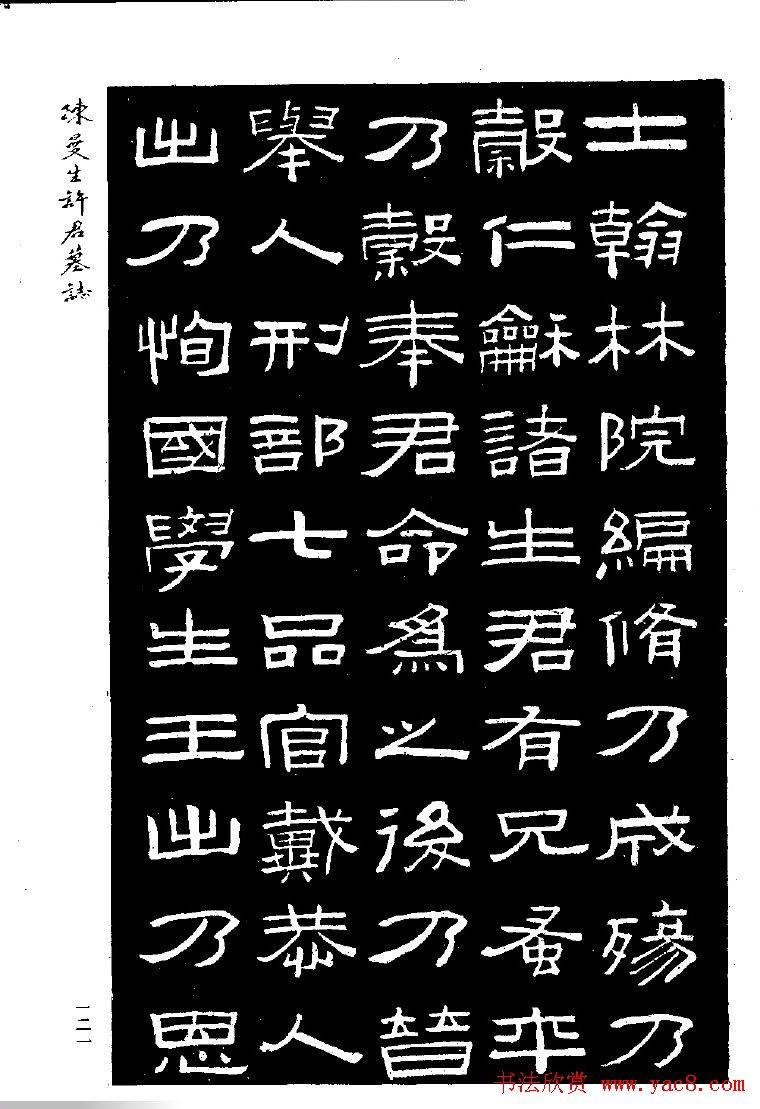 士翰林院編脩乃成殤乃
穀仁龢諸生君有兄蚤卒
乃穀奉君命為之後乃普
舉人刑部七品官戴恭人
出乃恂國學生王出乃恩
陳曼生許君墓誌
一二一
书法欣赏 www.yac8.com